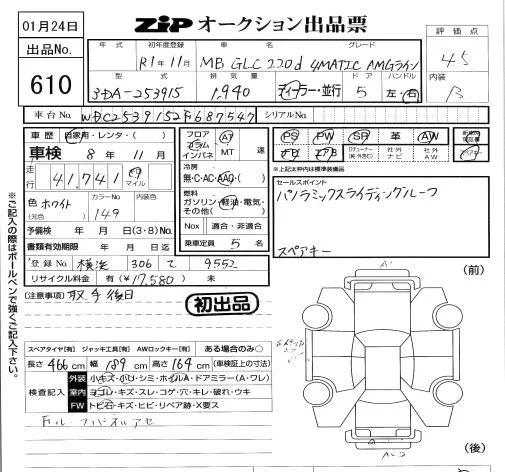 01月24日
出品No.
610
ZIP オークション出品票
評価点
4.5
内装
B
年式
初年度登録
車名
グレード
R1年11月
MB GLC 220d 4MATIC AMGライン
型式
排気量
ドア
ハンドル
3DA-253915
1,940
ディーラー・並行
5
左・右
車台No.
WDC2539152F687547
シリアルNo.
車歴
自家用・レンタ・( )
車検
8年 11月
走行
41,741
km マイル
色
(元色)
ホワイト
カラーNo.
149
内装色
予備検 年 月 日(3・8)No.
書類有効期限 年 月 日迄
登録No.
横浜 306 て 9552
リサイクル料金 有(¥17,580) 無
フロア
コラム
インパネ
AT
MT 速
冷房
無・C・AC・AAC・( )
燃料
ガソリン・軽油・電気・
その他( )
Nox 適合・非適合
乗車定員 5 名
PS PW SR 革 AW
ナビ エアB
TVチューナー
(純・社外)
社外
ナビ
社外
AW
新車時
保証書
スペアキー
*上記太枠内は標準装備品
セールスポイント
パノラミックスライディングルーフ
スペアキー
(注意事項)
取手後日
初出品
スペアタイヤ[有] ジャッキ工具[有] AWロックキー[有] ある場合のみ○
長さ 466 cm 幅 189 cm 高さ 164 cm (車検証上の寸法)
検査記入
外装 小キズ・小凹・シミ・ホイルA・ドアミラー(A・ワレ)
室内 ヨゴレ・キズ・スレ・コゲ・穴・キレ・破れ・ウキ
FW トビ石・キズ・ヒビ・リペア跡・X要ス
※ご記入の際はボールペンで強くご記入下さい。
(前)
A1
(後)